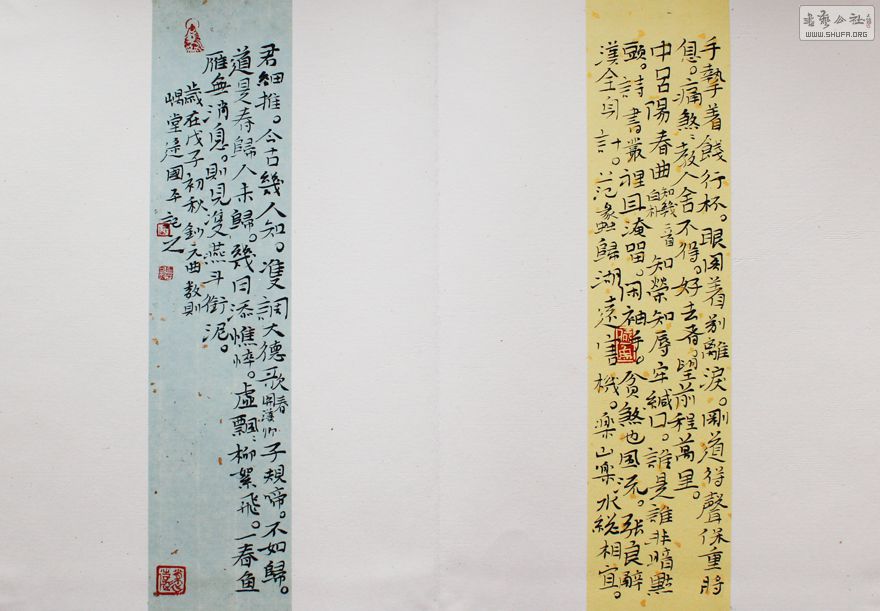 手執着餞行杯。眼閣着别離淚。剛道得聲保重將
息。痛煞〻教人舍不得。好去者。望前程萬里。
中呂陽春曲 知幾 二首 白朴 知榮知辱牢緘口。誰是誰非暗點
頭。詩書叢裡且淹留。闲袖手。貧煞也風流。張良辭
漢全身計。范蠡歸湖遠害機。樂山樂水総相宜。
君細推。今古幾人知。雙調大德歌 春 関漢卿 子規啼。不如歸。
道是春歸人未歸。幾日添憔悴。虛飄〻柳絮飛。一春魚
雁無消息。則見雙燕斗銜泥。
歲在戊子初秋鈔元曲数則
惕堂逄國平記之
書藝公社
WWW.SHUFA.ORG